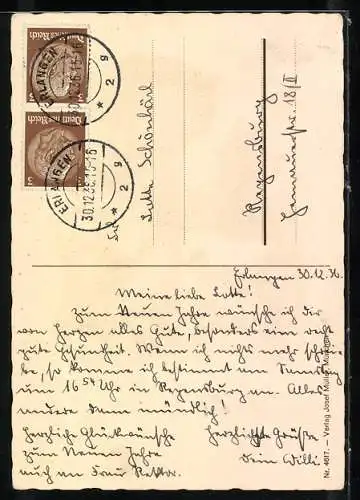 Deutsches Reich
3
Deutsches Reich
3
ERLANGEN
* 2 g
ERLANGEN
30.12.36.15-16
* 2 g
Frl.
Lotte Schönhärl
Regensburg
18/II
Erlangen 30.12.36.
Meine liebe Lotte!
Zum Neuen Jahre wünsche ich dir
von Herzen alles Gute, besonders eine recht
gute Gesundheit. Wenn ich nichts mehr schrei-
be, so komme ich bestimmt am Samstag
um 16 54 Uhr in Regensburg an. Alles
andere dann mündlich!
Herzliche Glückwünsche
zum Neuen Jahre
auch an Frau
Herzlichste Grüße
Dein Willi
Nr. 4617. – Verlag Josef